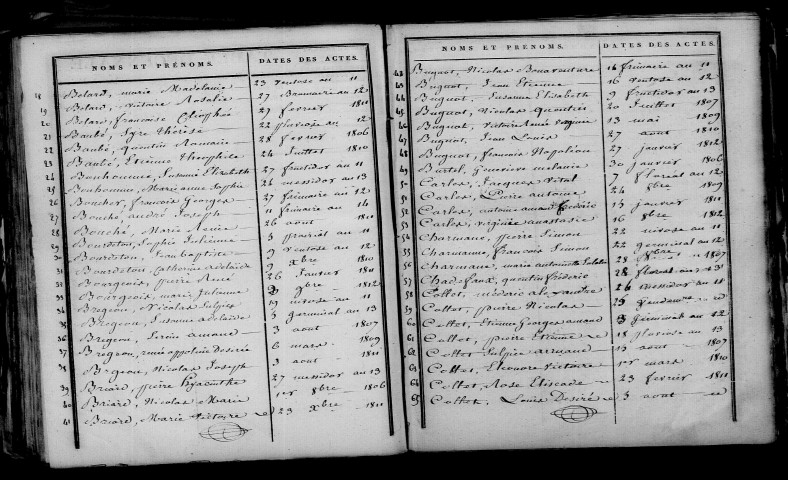 NOMS ET PRÉNOMS. DATES DES ACTES.
18 Bolard, marie Madelaine 23 ventose an 11
19 Bolard, victoire Rosalie 27 Brumaire an 12
20 Bolard, francoise Cléophée 27 fevrier 1811
21 Baubé, Thérèse 22 floreal an 12
22 Baubé, quentin Romain 28 fevrier 1806
23 Baubé, Etienne Theophile 24 Juillet 1810
24 Bonhomme, Susanne Elizabeth 27 fructidor an 11
25 Bonhomme, Marianne Sophie 26 messidor an 13
26 Boucher, francois Georges 27 frimaire an 12
27 Bouché, andré Joseph 11 frimaire an 14
28 Bouché, Marie 26 aout 1811
29 Bourdeton, Sophie Julienne 3 prairial an 11
30 Bourdeton, Jean baptiste 9 ventose an 12
31 Bourdeton, Catherine adelaide 9 xbre 1810
Bourgeois, pierre René 26 Janvier 1811
Bourgeois, marie 9bre 1812
Bregeon, Nicolas Sulpice 19 nivose an 11
35 Bregeon, Susanne adelaide 3 germinal an 13
36 Bregeon, amand 3 aout 1807
37 Bregeon, appoline Desirée 6 mars 1809
38 Bregeon, Nicolas Joseph 3 aout 1811
39 Briard, pierre hyacinthe 27 messidor an 13
40 Briard, Nicolas Marie 1er 8bre 1806
41 Briard, Marie Victoire 23 Xbre 1811
NOMS ET PRÉNOMS. DATES DES ACTES.
Buguot, Nicolas Bonaventure 16 frimaire an 11
43 Buguot, Jean Etienne 16 ventose an 12
44 Buguot, Susanne Elisabeth 9 fructidor an 13
45 Buguot, Nicolas quentin 20 Juillet 1807
46 Buguot, victoire 13 mai 1809
47 Buguot, Jean Louis 27 aout 1810
48 Buguot, francois Napoléon 27 janvier 1812
49 Burtel, genevieve melanie 30 janvier 1806
50 Carlos, Jacques vital 7 floreal an 12
51 Carlos, antoine 24 8bre 1809
52 Carlos, antoine amand frederic 15 janvier 1811
53 Carlos, virginie anastasie 16 8bre 1812
54 Charmane, pierre Simon 22 nivose an 11
55 Charmanne, francois Simon 22 germinal an 12
56 Charmane, marie antoinette 28 1807
57 Chadefaux, quentin frederic 28 floreal an 13
58 Collot, médéric alexandre 26 messidor an 11
59 Collot, pierre Nicolas
60 Collot, Etienne Georges amand 3 germinal an 12
61 Collot, pierre Etienne 18 an 13
62 Collot Sulpice armand 15 aout 1807
63 Collot, Eleonore victoire 1er mars 1810
64 Collot, Rose 23 fevrier 1811
65 Collot, Louis Desiré 3 aout